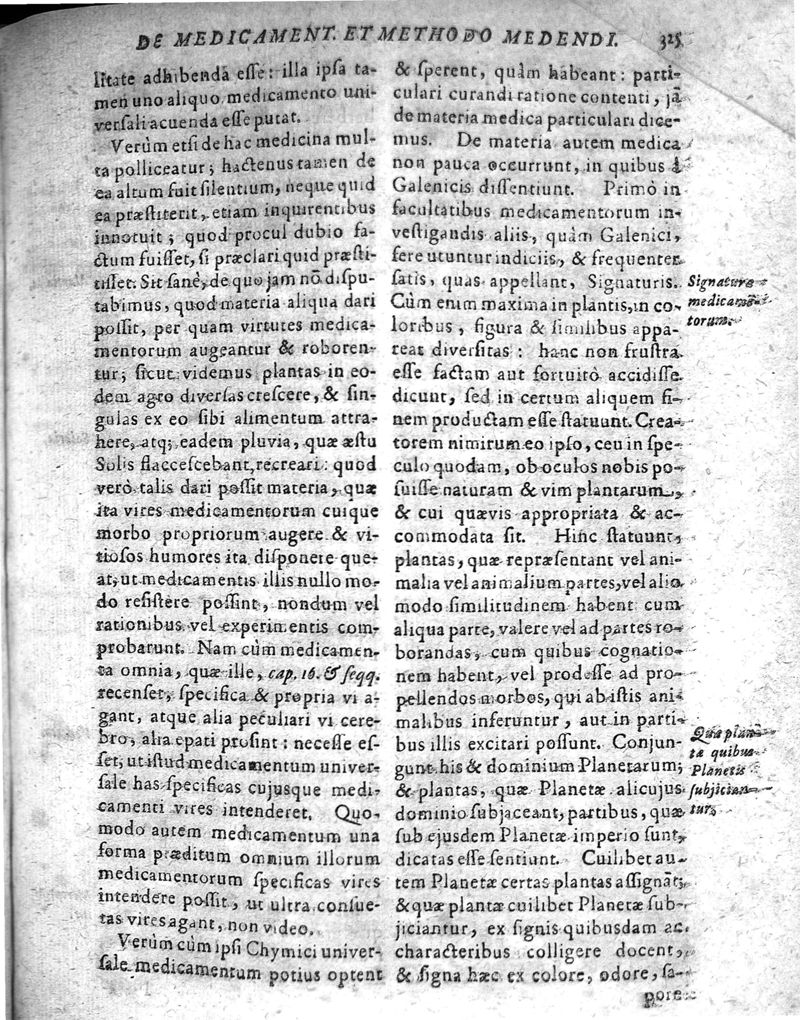 DE MEDICAMENT. ET METHODO MEDENDI. 325
litate adhibendã esse: illa ipsa ta-
men uno aliquo medicamento uni-
versali acuenda esse putat.
Verùm etsi de hac medicina mul-
ta polliceatur; hactenus tamen de
ea altum fuit silentium, neque quid
ea præstiterit, etiam inquirentibus
innotuit; quod procul dubio fa-
ctum fuisset, si præclari quid præsti-
tisset. Sit sanè, de quo jam nõ dispu-
tabimus, quod materia aliqua dari
possit, per quam virtutes medica-
mentorum augeantur & roboren-
tur; sicut videmus plantas in eo-
dem agro diversas crescere, & sin-
gulas ex eo sibi alimentum attra-
here, atq; eadem pluvia, quæ æstu
Solis flaccescebant, recreari: quod
verò talis dari possit materia, quæ
ita vires medicamentorum cuique
morbo propriorum augere & vi-
tiosos humores ita disponere que-
at, ut medicamentis illis nullo mo-
do resistere possint, nondum vel
rationibus vel experimentis com-
probarunt. Nam cùm medicamen-
ta omnia, quæ ille, cap. 16. & seqq.
recenset, specifica & propria vi a-
gant, atque alia peculiari vi cere-
bro, alia epati prosint: necesse es-
set, ut istud medicamentum univer-
sale has specificas cujusque medi-
camenti vires intenderet. Quo-
modo autem medicamentum una
forma præditum omnium illorum
medicamentorum specificas vires
intendere possit, ut ultra consue-
tas vires agant, non video.
Verùm cùm ipsi Chymici univer-
sale medicamentum potius optent
& sperent, quàm habeant: parti-
culari curandi ratione contenti, jã
de materia medica particulari dice-
mus. De materia autem medica
non pauca occurrunt, in quibus à
Galenicis dissentiunt. Primò in
facultatibus medicamentorum in-
vestigandis aliis, quàm Galenici,
fere utuntur indiciis, & frequenter
satis, quas appellant, Signaturis.
Cùm enim maxima in plantis, in co-
loribus, figura & similibus appa-
reat diversitas: hanc non frustra
esse factam aut fortuitò accidisse
dicunt, sed in certum aliquem fi-
nem productam esse statuunt. Crea-
torem nimirum eo ipso, ceu in spe-
culo quodam, ob oculos nobis po-
suisse naturam & vim plantarum,
& cui quævis appropriata & ac-
commodata sit. Hinc statuunt,
plantas, quæ repræsentant vel ani-
malia vel animalium partes, vel alio
modo similitudinem habent cum
aliqua parte, valere vel ad partes ro-
borandas, cum quibus cognatio-
nem habent, vel prodesse ad pro-
pellendos morbos, qui ab istis ani-
malibus inferuntur, aut in parti-
bus illis excitari possunt. Conjun-
gunt his & dominium Planetarum;
& plantas, quæ Planetæ alicujus
dominio subjaceant, partibus, quæ
sub ejusdem Planetæ imperio sunt,
dicatas esse sentiunt. Cuilibet au-
tem Planetæ certas plantas assignãt;
& quæ plantæ cuilibet Planetæ sub-
jiciantur, ex signis quibusdam ac
characteribus colligere docent,
& signa hæc ex colore, odore, sa-
pore
Signaturæ
medicamẽ-
torum.
Quæ plan-
tæ quibus
Planetis
subjician-
tur.